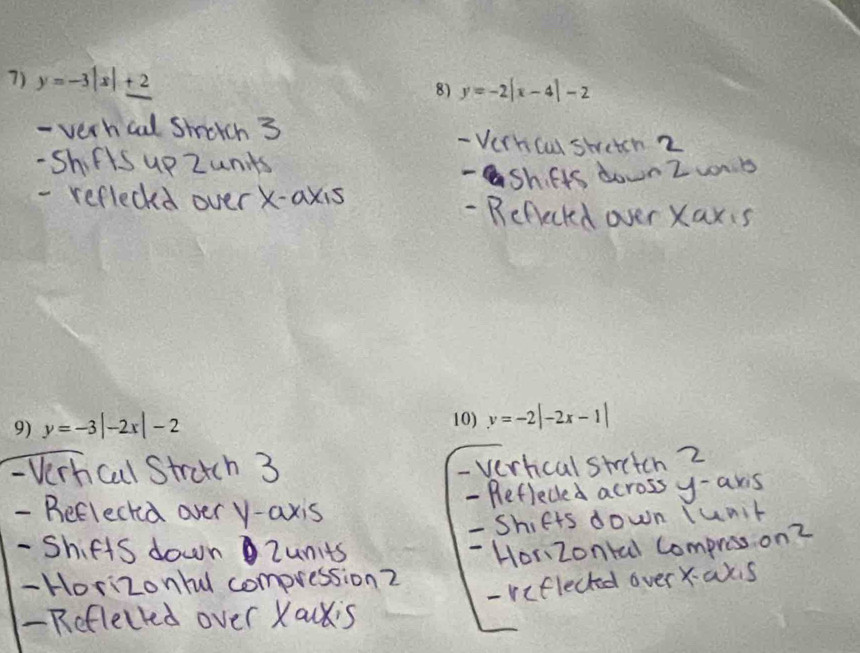 7) y = -3|x| + 2
- vertical Stretch 3
- Shifts up 2 units
- reflected over x-axis
8) y = -2|x - 4| - 2
- Vertical stretch 2
- Shifts down 2 units
- Reflected over x axis
9) y = -3|-2x| - 2
- Vertical Stretch 3
- Reflected over y-axis
- Shifts down 2 units
- Horizontal compression 2
- Reflected over X axis
10) y = -2|-2x - 1|
- vertical stretch 2
- Reflected across y-axis
- Shifts down 1 unit
- Horizontal compression 2
- reflected over x-axis